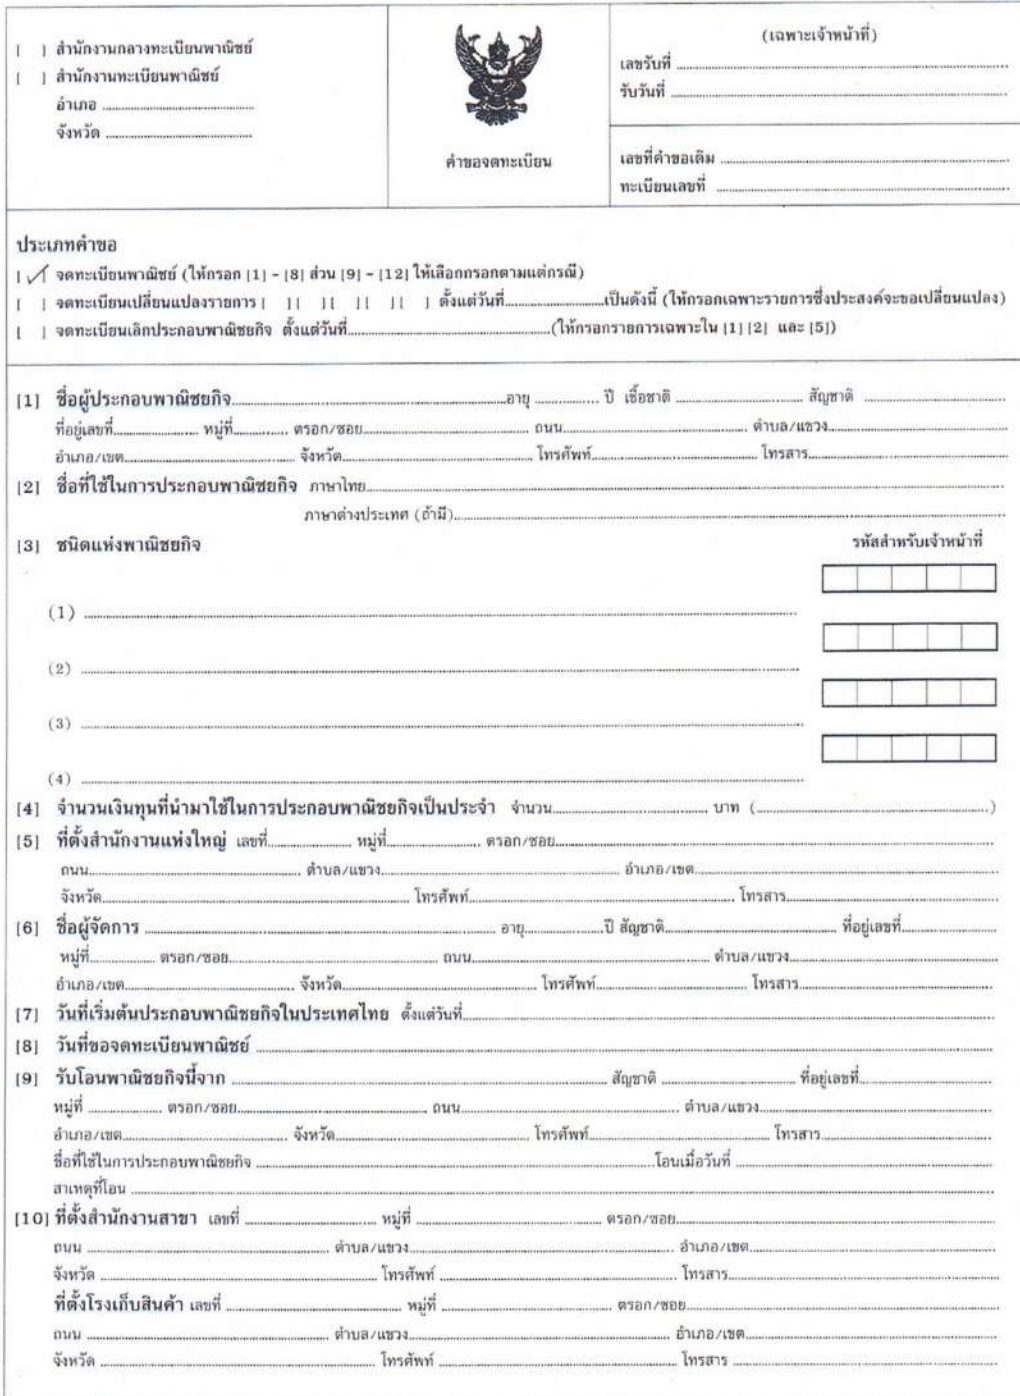 [ ] สำนักงานกลางทะเบียนพาณิชย์
[ ] สำนักงานทะเบียนพาณิชย์
อำเภอ ........................................
จังหวัด ........................................
คำขอจดทะเบียน
(เฉพาะเจ้าหน้าที่)
เลขรับที่ ........................................
รับวันที่ ........................................
เลขที่คำขอเดิม ........................................
ทะเบียนเลขที่ ........................................
ประเภทคำขอ
[✓] จดทะเบียนพาณิชย์ (ให้กรอก [1] - [8] ส่วน [9] - [12] ให้เลือกกรอกตามแต่กรณี)
[ ] จดทะเบียนเปลี่ยนแปลงรายการ [ ] [ ] [ ] [ ] ตั้งแต่วันที่....................เป็นดังนี้ (ให้กรอกเฉพาะรายการซึ่งประสงค์จะขอเปลี่ยนแปลง)
[ ] จดทะเบียนเลิกประกอบพาณิชยกิจ ตั้งแต่วันที่........................................(ให้กรอกรายการเฉพาะใน [1] [2] และ [5])
[1] ชื่อผู้ประกอบพาณิชยกิจ........................................อายุ ............... ปี เชื้อชาติ .................... สัญชาติ ....................
ที่อยู่เลขที่.................... หมู่ที่............... ตรอก/ซอย.............................. ถนน.............................. ตำบล/แขวง..............................
อำเภอ/เขต.............................. จังหวัด.............................. โทรศัพท์.............................. โทรสาร..............................
[2] ชื่อที่ใช้ในการประกอบพาณิชยกิจ ภาษาไทย........................................
ภาษาต่างประเทศ (ถ้ามี)........................................
[3] ชนิดแห่งพาณิชยกิจ รหัสสำหรับเจ้าหน้าที่
(1) ........................................
(2) ........................................
(3) ........................................
(4) ........................................
[4] จำนวนเงินทุนที่นำมาใช้ในการประกอบพาณิชยกิจเป็นประจำ จำนวน.............................. บาท (........................................)
[5] ที่ตั้งสำนักงานแห่งใหญ่ เลขที่.................... หมู่ที่.................... ตรอก/ซอย........................................
ถนน.............................. ตำบล/แขวง.............................. อำเภอ/เขต..............................
จังหวัด.............................. โทรศัพท์.............................. โทรสาร..............................
[6] ชื่อผู้จัดการ ........................................ อายุ....................ปี สัญชาติ.............................. ที่อยู่เลขที่....................
หมู่ที่............... ตรอก/ซอย.............................. ถนน.............................. ตำบล/แขวง..............................
อำเภอ/เขต.............................. จังหวัด.............................. โทรศัพท์.............................. โทรสาร..............................
[7] วันที่เริ่มต้นประกอบพาณิชยกิจในประเทศไทย ตั้งแต่วันที่........................................
[8] วันที่ขอจดทะเบียนพาณิชย์ ........................................
[9] รับโอนพาณิชยกิจนี้จาก ........................................ สัญชาติ .................... ที่อยู่เลขที่....................
หมู่ที่ ............... ตรอก/ซอย.............................. ถนน.............................. ตำบล/แขวง..............................
อำเภอ/เขต.............................. จังหวัด.............................. โทรศัพท์.............................. โทรสาร..............................
ชื่อที่ใช้ในการประกอบพาณิชยกิจ ........................................โอนเมื่อวันที่ ........................................
สาเหตุที่โอน ........................................
[10] ที่ตั้งสำนักงานสาขา เลขที่ .................... หมู่ที่ .................... ตรอก/ซอย........................................
ถนน .............................. ตำบล/แขวง.............................. อำเภอ/เขต..............................
จังหวัด .............................. โทรศัพท์ .............................. โทรสาร..............................
ที่ตั้งโรงเก็บสินค้า เลขที่ .................... หมู่ที่ .................... ตรอก/ซอย........................................
ถนน .............................. ตำบล/แขวง.............................. อำเภอ/เขต..............................
จังหวัด .............................. โทรศัพท์ .............................. โทรสาร ..............................